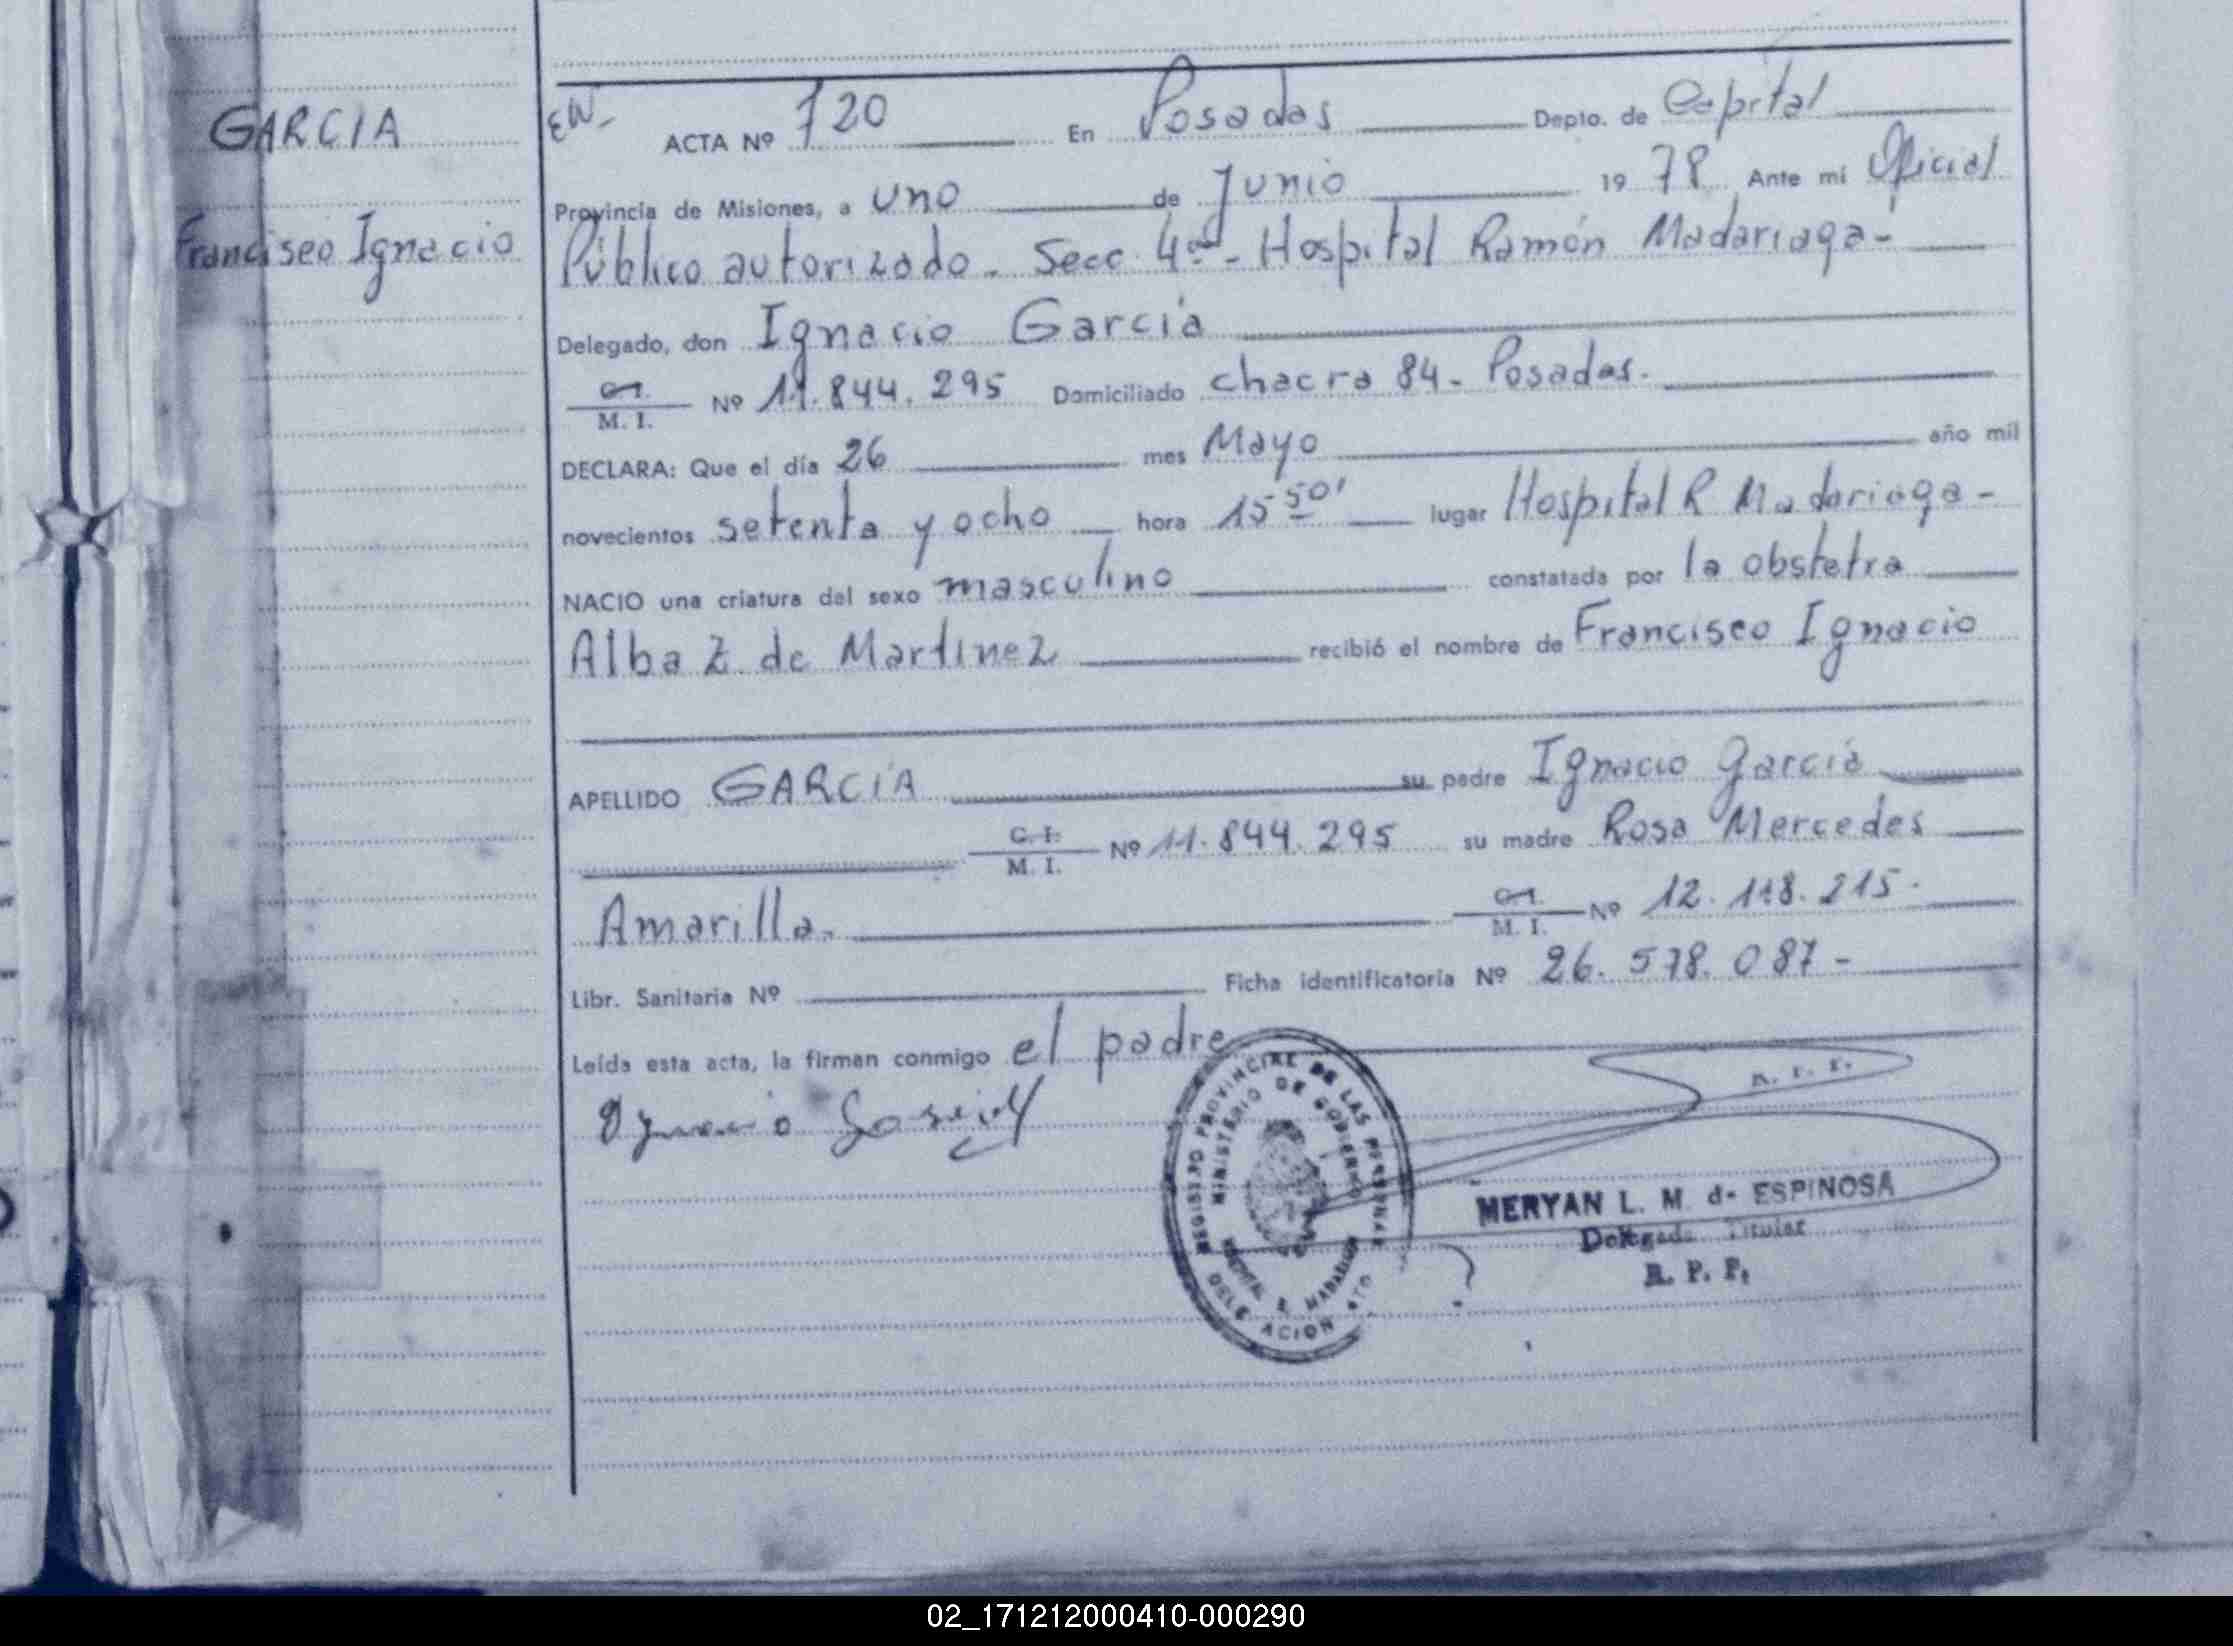 GARCIA
Francisco Ignacio
EW-
ACTA Nº 720 En Posadas Depto. de Capital
Provincia de Misiones, a uno de Junio 1978 Ante mi Oficial
Público autorizado. Secc. 4ª - Hospital Ramón Madariaga-
Delegado, don Ignacio García
C.I.
M. I. Nº 11.844.295 Domiciliado chacra 84- Posadas.
DECLARA: Que el día 26 mes Mayo año mil
novecientos setenta y ocho hora 15 50' lugar Hospital R Madariaga-
NACIO una criatura del sexo masculino constatada por la obstetra
Alba Z. de Martinez recibió el nombre de Francisco Ignacio
APELLIDO GARCÍA su padre Ignacio García
C. I.
M. I. Nº 11.844.295 su madre Rosa Mercedes
Amarilla. C.I.
M. I. Nº 12.118.215.
Libr. Sanitaria Nº Ficha identificatoria Nº 26.578.087-
Leída esta acta, la firman conmigo el padre
Ignacio Garcia
REGISTRO PROVINCIAL DE LAS PERSONAS
MINISTERIO DE GOBIERNO
HOSPITAL R. MADARIAGA
DELEGACION
R. P. P.
MERYAN L. M. de ESPINOSA
Delegada Titular
R. P. P.
02_171212000410-000290